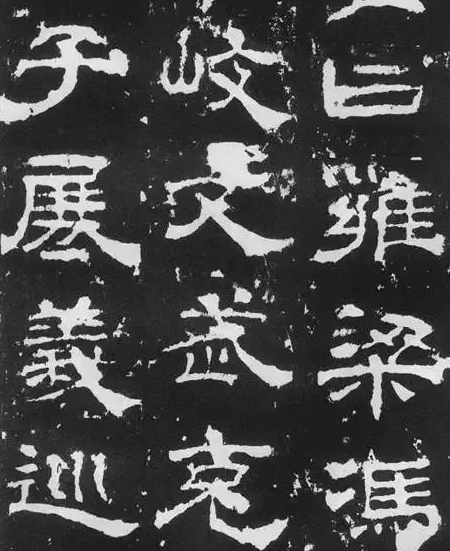 曰雍梁馮
岐文武克
子展義巡